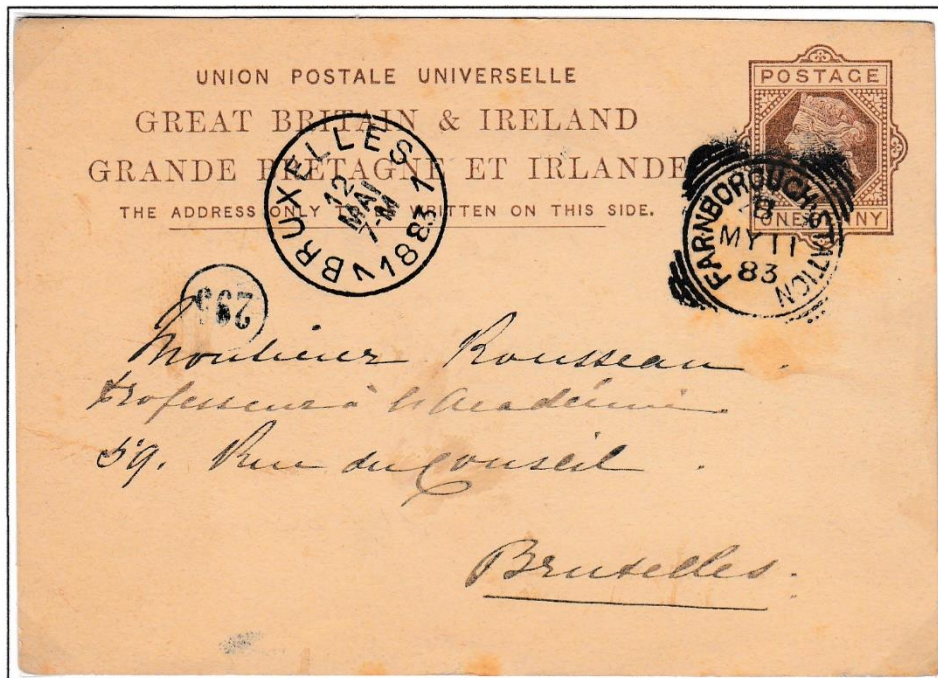 UNION POSTALE UNIVERSELLE
GREAT BRITAIN & IRELAND
GRANDE BRETAGNE ET IRLANDE
THE ADDRESS ONLY TO BE WRITTEN ON THIS SIDE.
POSTAGE
ONE PENNY
BRUXELLES 1
12
MAI
7-M
1883
FARNBOROUGH STATION
B
MY 11
83
Monsieur Rousseau.
Professeur à l'Académie.
59. Rue du Conseil.
Bruxelles.